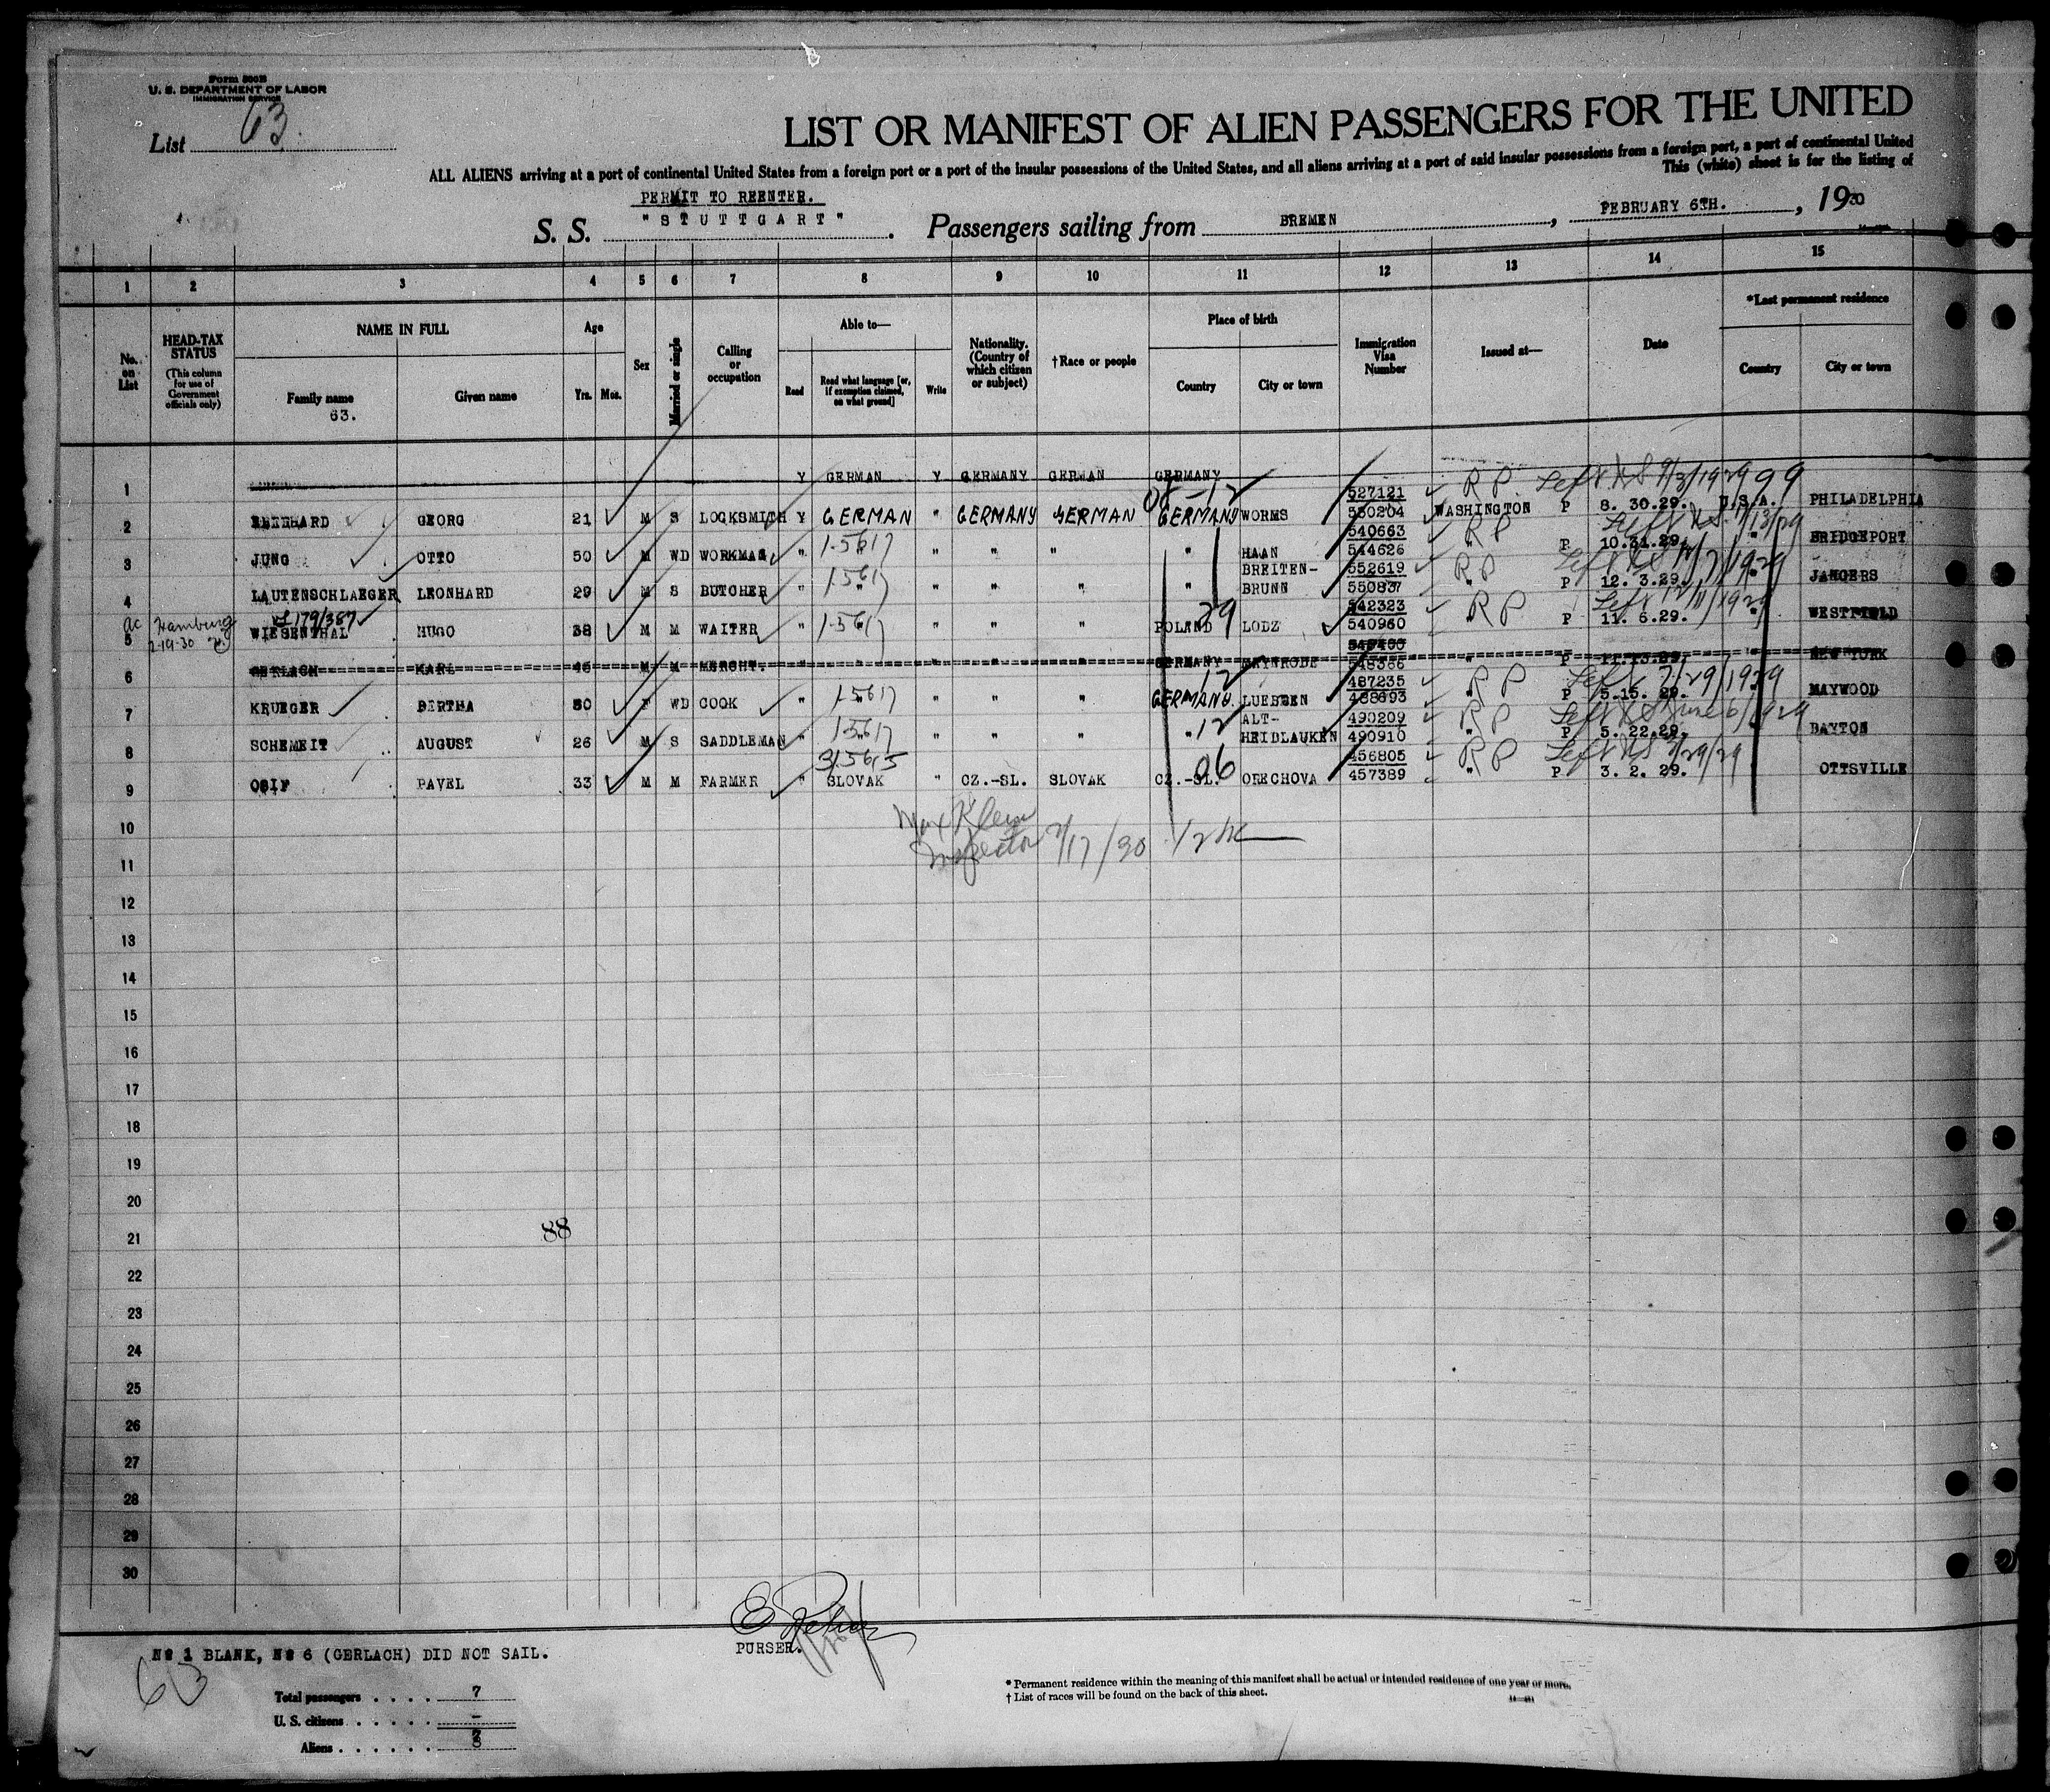 Form 500B
U. S. DEPARTMENT OF LABOR
IMMIGRATION SERVICE
List 63.
LIST OR MANIFEST OF ALIEN PASSENGERS FOR THE UNITED
ALL ALIENS arriving at a port of continental United States from a foreign port or a port of the insular possessions of the United States, and all aliens arriving at a port of said insular possessions from a foreign port, a part of continental United
This (white) sheet is for the listing of
PERMIT TO REENTER.
S. S. "STUTTGART". Passengers sailing from BREMEN, FEBRUARY 6TH., 1930
1 2 3 4 5 6 7 8 9 10 11 12 13 14 15
No. on List
HEAD-TAX STATUS
(This column for use of Government officials only)
NAME IN FULL
Family name
63.
Given name
Age
Yrs. Mos.
Sex
Married or single
Calling or occupation
Able to—
Read
Read what language [or, if exemption claimed, on what ground]
Write
Nationality. (Country of which citizen or subject)
†Race or people
Place of birth
Country
City or town
Immigration Visa Number
Issued at—
Date
*Last permanent residence
Country
City or town
1 Y GERMAN Y GERMANY GERMAN GERMANY
08-12 527121 RP Left US 9/3/1929 99
2 GEORG 21 M S LOCKSMITH Y GERMAN " GERMANY GERMAN GERMANY WORMS 530204 WASHINGTON P 8. 30.29. U.S.A. PHILADELPHIA
540663 RP
3 JUNG OTTO 50 M WD WORKMAN " 1-5617 " " " " HAAN 544626 " P 10.31.29. " BRIDGEPORT
BREITEN- 552619 RP
4 LAUTENSCHLAEGER LEONHARD 29 M S BUTCHER " 1-5617 " " " " BRUNN 550837 " P 12. 3.29. " JANGERS
ac Hamburg 179/387 39 542323 RP Left 12/11/1929
5 2-19-30 WIESENTHAL HUGO 38 M M WAITER " 1-5617 " " " POLAND LODZ 540960 " P 11. 6.29. WESTFIELD
6 GERLACH KARL 46 M M MERCHT. " " " " " GERMANY 548386 " P 11.13.29. " NEW YORK
12 487235 RP Left 7/29/1929
7 KRUEGER BERTHA 50 F WD COOK " 1-5617 " " " GERMANY. LUEBBEN 488693 " P 5.15. 29. MAYWOOD
ALT- 490209 RP Left US June 6/1929
8 SCHEMEIT AUGUST 26 M S SADDLEMAN " 1-5617 " " " " 12 HEIDLAUKEN 490910 " P 5. 22.29. BAYTON
315615 06 456805 RP Left US 3/29/29
9 OSIF PAVEL 33 M M FARMER " SLOVAK " CZ.-SL. SLOVAK CZ.-SL. ORECHOVA 457389 " P 3. 2. 29. OTTSVILLE
10
Max Klein
Inspector 2/17/30
11
12
13
14
15
16
17
18
19
20
88
21
22
23
24
25
26
27
28
29
30
PURSER.
No 1 BLANK, No 6 (GERLACH) DID NOT SAIL.
63
Total passengers . . . . 7
U. S. citizens . . . . . –
Aliens . . . . . .
* Permanent residence within the meaning of this manifest shall be actual or intended residence of one year or more.
† List of races will be found on the back of this sheet.